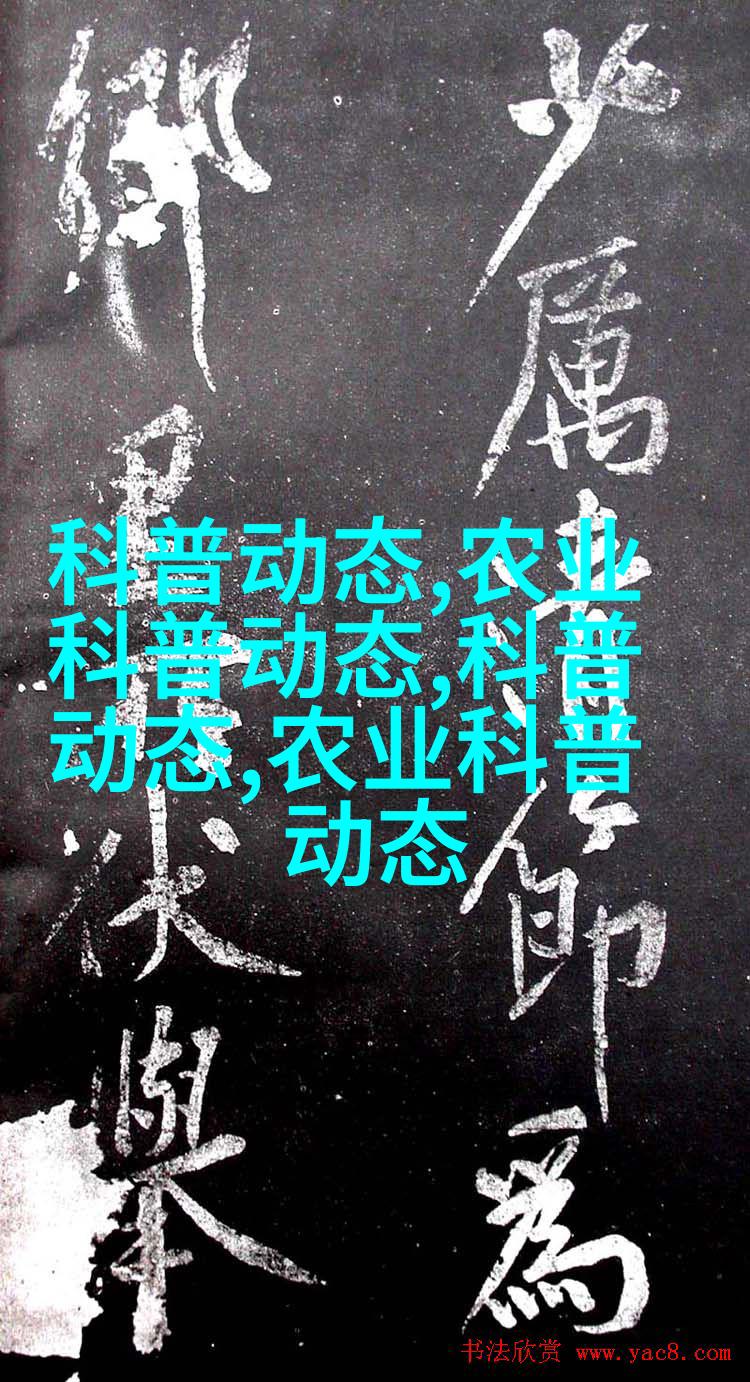 少厲節為
鄉里伏舉
科普动态,农业
科普动态,科普
动态,农业科普
动态
书法欣赏 www.yac8.com